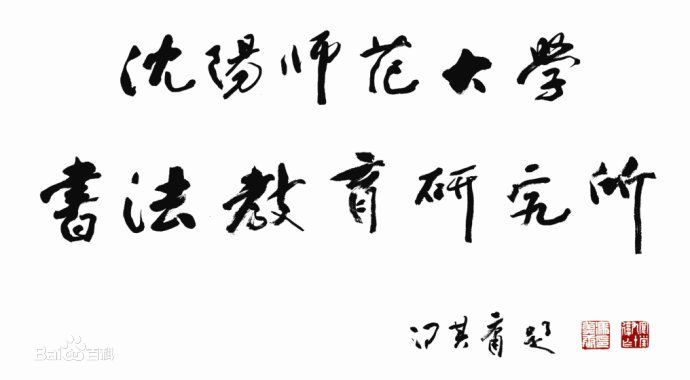 沈陽师范大学
書法教育研究所
冯其庸题
Baidu百科